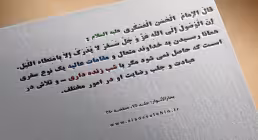 قال الإمامُ الحَسَنُ العَسْکَری علیه السلام :
إنّ الوُصُولَ إلَی اللهِ عَزَّ وَ جَلَّ سَفَرٌ لا یُدرَکُ إلّا بِامتِطاءِ اللَّیل.
همانا رسیدن به خداوند متعال و مقامات عالیه یک نوع سفری
است که حاصل نمی شود مگر با شب زنده داری ــ و تلاش در
عبادت و جلب رضایت او در امور مختلف.